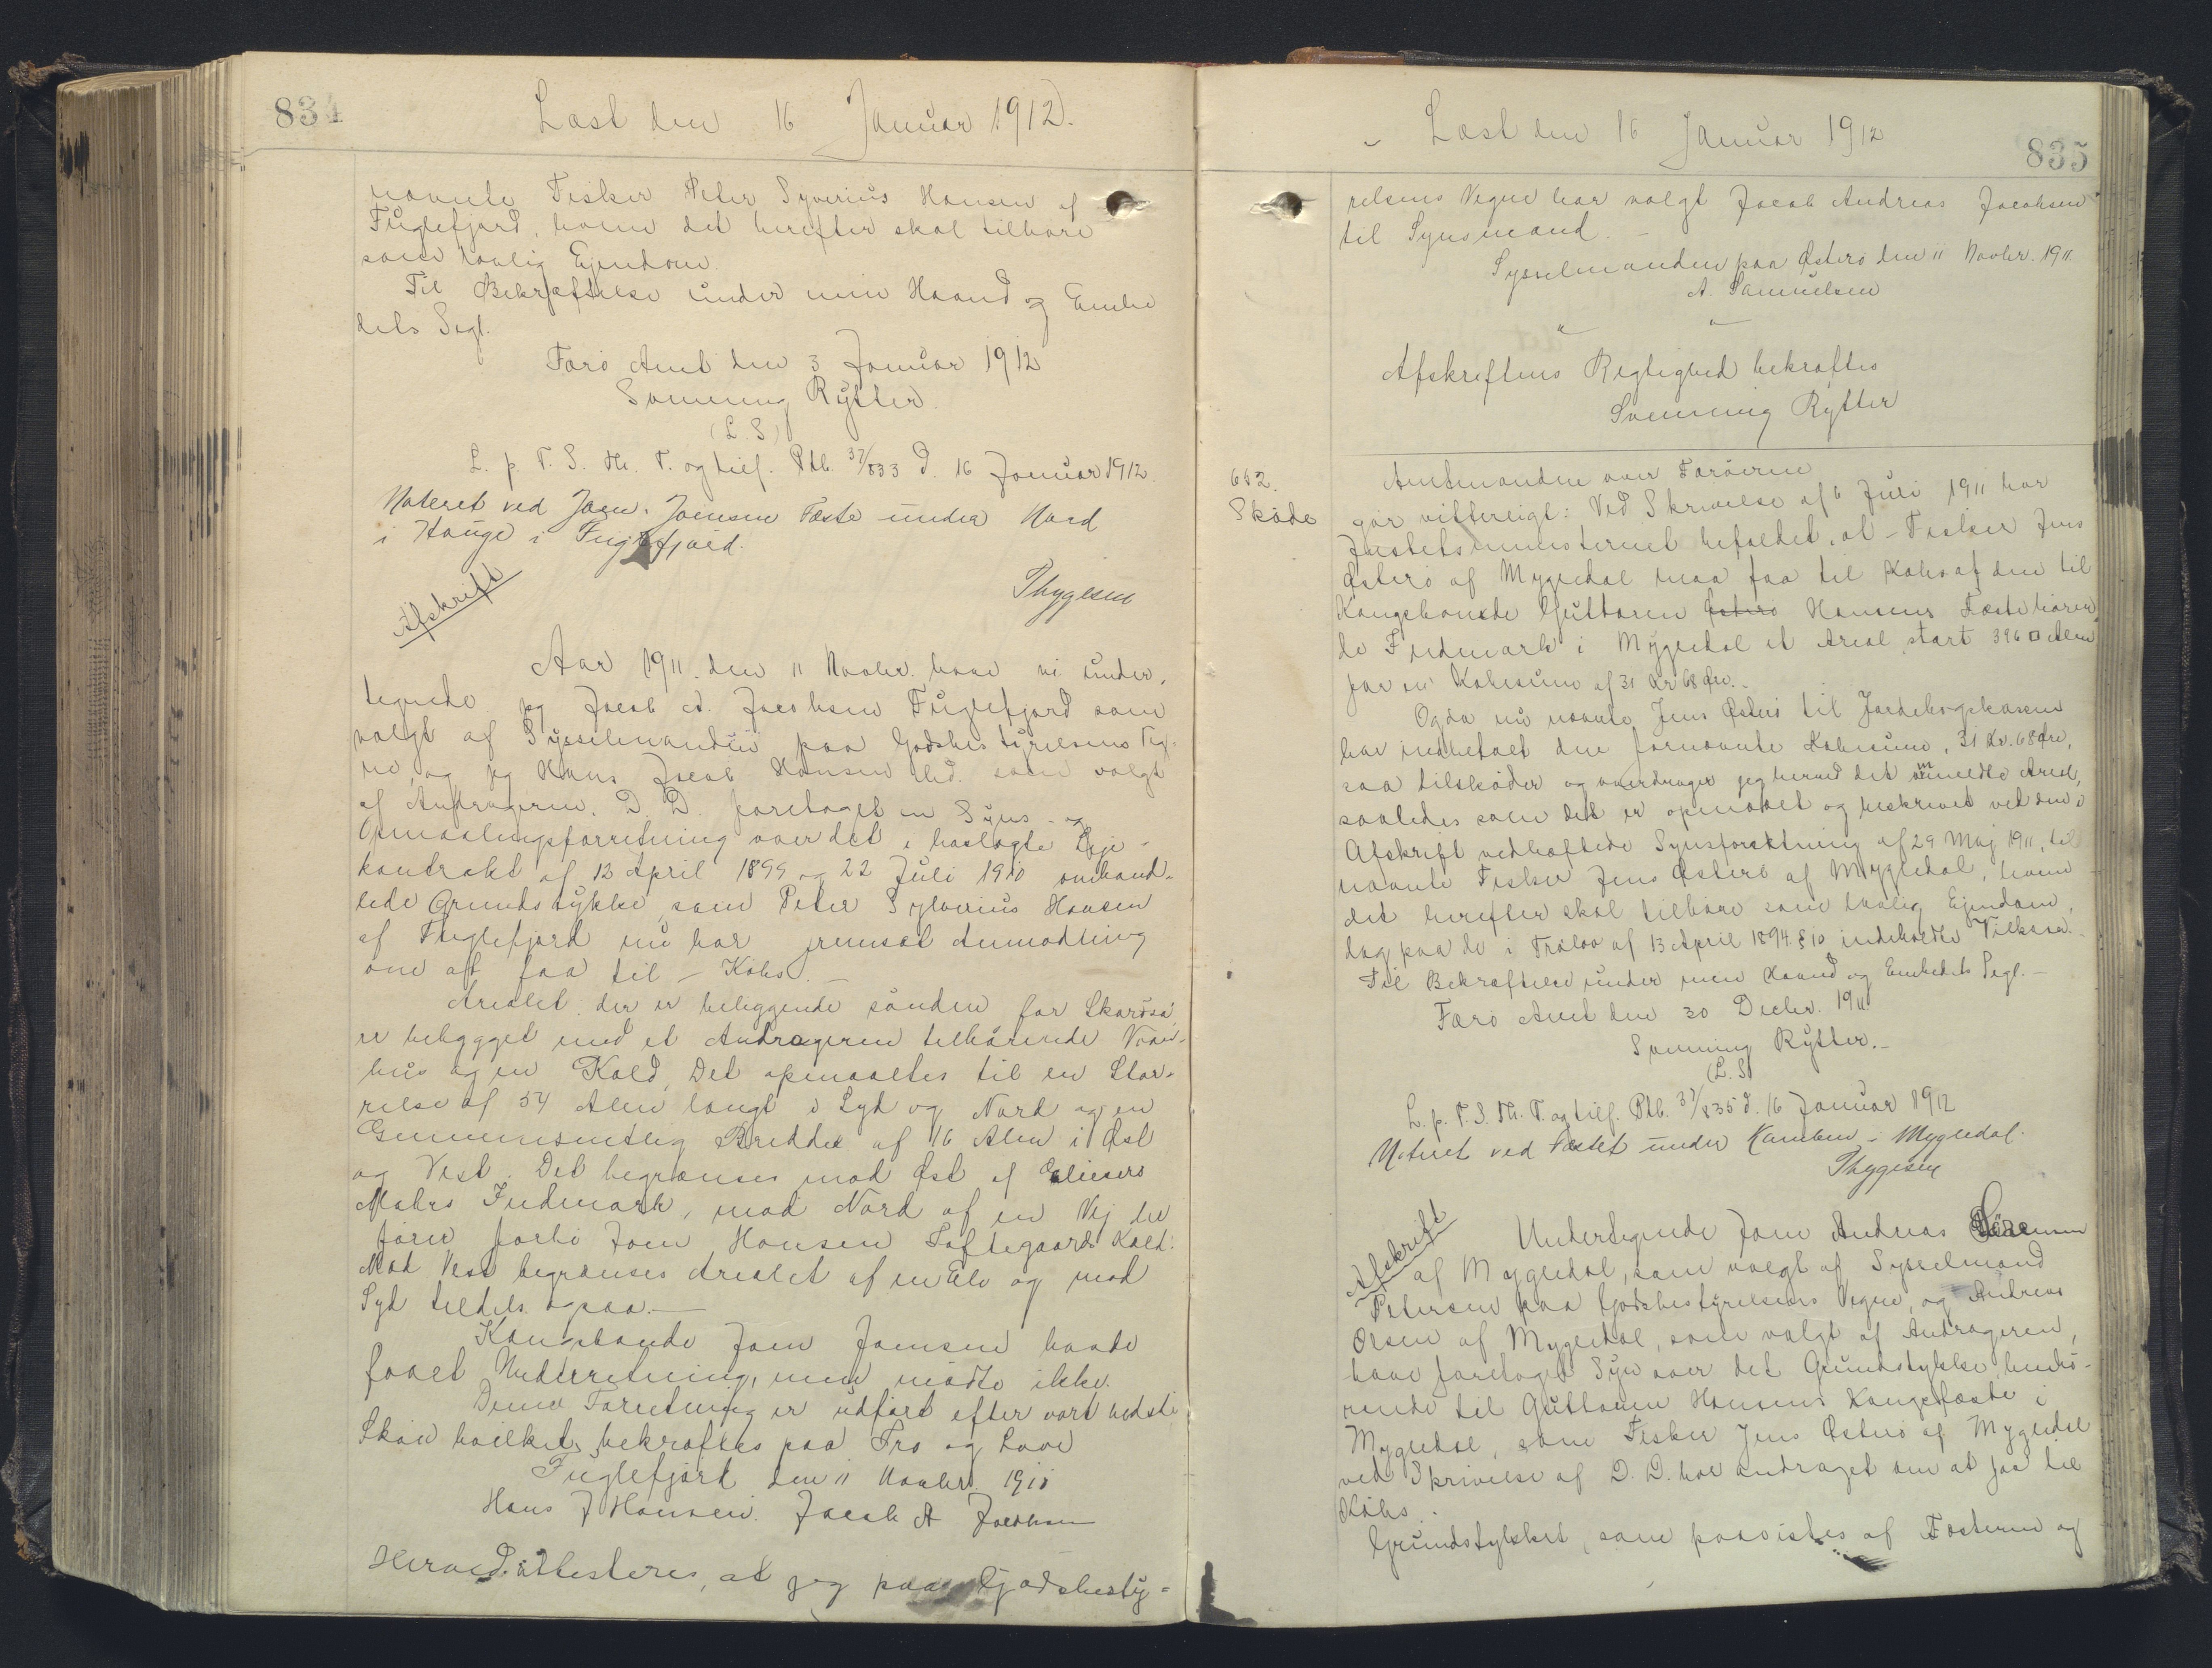 834
Læst den 16 Januar 1912.
nævnte Fisker Peter Syverius Hansen af
Fuglefjord, hvem det herefter skal tilhøre
som lovlig Ejendom.
Til Bekræftelse under min Haand og Embe
dets Segl.
Færø Amt den 3 Januar 1912
Svenning Rytter
(L. S)
L. p. F. S. Th. T. og tilf. Ptb. 37/833 d. 16 Januar 1912.
Noteret ved Joen. Joensen Fæste under Nord
i Hauge i Fuglefjord.
Thygesen
Afskrift
Aar 1911. den 11 Novbr. have vi under,
tegnede jeg Jacob A. Jacobsen Fuglefjord som
valgt af Sysselmanden paa Godsbestyrelsens Veg-
ne, og jeg Hans Jacob Hansen ibd. som valgt
af Andrageren. D. D. foretaget en Syns- og
Opmaalingsforretning over det i haslagte Leje-
kontrakt af 12 April 1899 og 22 Juli 1910 omhand-
lede Grundstykke, som Peter Sylverius Hansen
af Fuglefjord nu har fremsat Anmodning
om at faa til - Købs. -
Arealet der er beliggende sønden for Skarðså,
er bebygget med et Andrageren tilhørende Vaan-
hus og en Kald, Det opmaaltes til en Stør-
relse af 54 Alen langt i Syd og Nord og en
Gennemsnitlig Bredde af 16 Alen i Øst
og Vest. Det begrænses mod Øst af Eliesers
Mohrs Indmark, mod Nord af en Vej der
fører forbi Joen Hansen Loftegaards Kald.
Mod Vest begrænses Arealet af en Elv og mod
Syd tildels ogsaa.-
Kongsbonde Joen Joensen havde
faaet Underretning, men mødte ikke.
Denne Forretning er udført efter vort bedste
Skøn hvilket bekræftes paa Tro og Love
Fuglefjord den 11 Novbr. 1911
Hans J Hansen. Jacob A Jacobsen
Herved attesteres, at jeg paa Godsbesty=
Læst den 16 Januar 1912
835
relsens Vegne har valgt Jacob Andreas Jacobsen
til Synsmand. -
Sysselmanden paa Østerø den 11 Novbr. 1911.
A. Samuelsen
Afskriftens Rigtighed bekræftes
Svenning Rytter
662.
Skøde
Amtmanden over Færøerne
gør vitterligt: Ved Skrivelse af 6 Juli 1911 har
Justitsministeriet befaldet, at - Fisker Jens
Østerø af Mygledal maa faa til Købs af den til
Kongsbonde Guttorm Østerø Hansens Fæste høren
de Indmark i Mygledal et Areal stort 396 □ Alen
for en Købesum af 31 Kr 68 Øre.-
Og da nu nævnte Jens Østerø til Jordebogskassen
har indbetalt den fornævnte Købesum, 31 Kr. 68 Øre,
saa tilskøder og overdrager jeg herved det ommeldte Areal,
saaledes som det er opmaalt og beskrevet ved den i
Afskrift vedhæftede Synsforretning af 29 Maj 1911, til
nævnte Fisker Jens Østerø af Mygledal, hvem
det herefter skal tilhøre som lovlig Ejendom,
dog paa de i Frølov af 13 April 1894 § 10 indeholdte Vilkaar.
Til Bekræftelse under min Haand og Embedets Segl. -
Færø Amt den 30 Decbr. 1911
Svenning Rytter.-
(L. S)
L. p. F. S. Th. T. og tilf. Ptb. 37/835 d. 16 Januar 1912
Noteret ved Fæstet under Kamben i Mygledal.
Thygesen
Afskrift
Undertegnede Joen Andreas Sørensen
af Mygledal, som valgt af Sysselmand
Petersen paa Godsbestyrelsens Vegne, og Andreas
Ørsen af Mygledal, som valgt af Andrageren,
have foretaget Syn over det Grundstykke, henhø-
rende til Guttorm Hansens Kongsfæste i
Mygledal, som Fisker Jens Østerø af Mygledal
ved Skrivelse af D. D. har andraget om at faa til
Købs.
Grundstykket, som paavistes af Fæsteren og